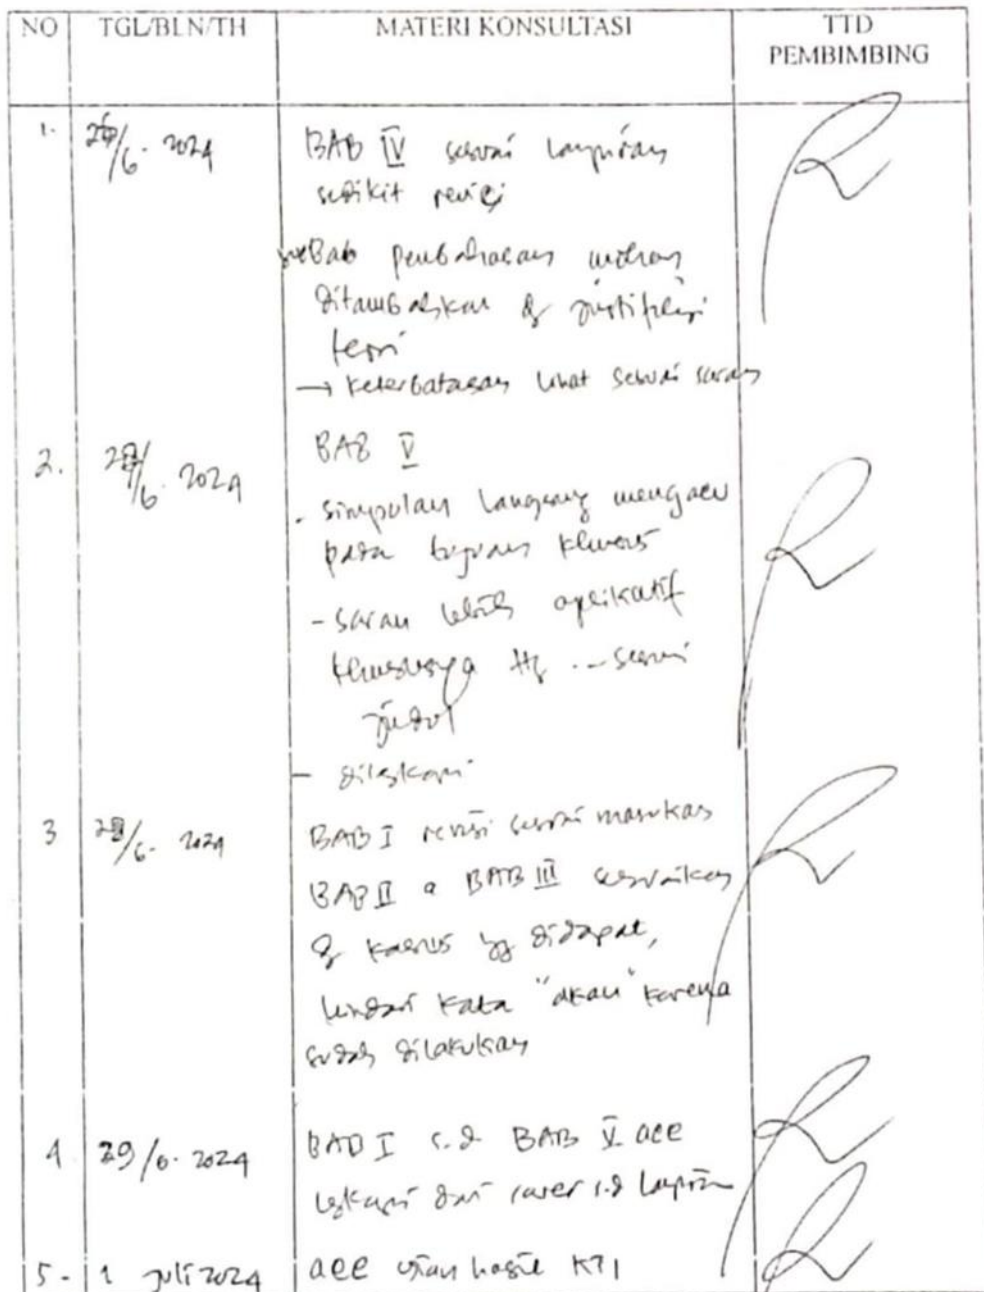 NO TGL/BLN/TH MATERI KONSULTASI TTD
PEMBIMBING
1. /6. 2024 BAB IV sesuai lampiran
sedikit revisi
Bab pembahasan mohon
ditambahkan dg justifikasi
teori
→ keterbatasan lihat sesuai saran
2. /6. 2024 BAB V
- simpulan langsung mengacu
pada tujuan khusus
- saran lebih aplikatif
khususnya ttg ... sesuai
judul
- dilengkapi
3 /6. 2024 BAB I revisi sesuai masukan
BAB II & BAB III sesuaikan
dg kasus yg didapat,
hindari kata "akan" karena
sudah dilakukan
4 29/6. 2024 BAB I s.d BAB V acc
lengkapi dari cover s.d lampiran
5. 1 juli 2024 acc ujian hasil KTI